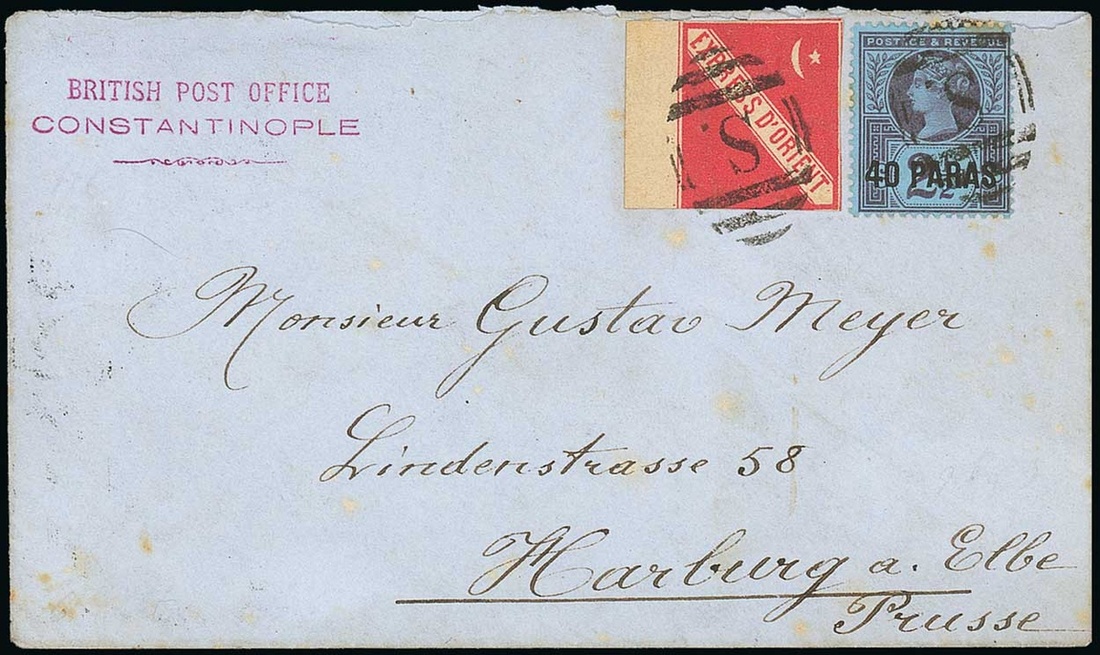 BRITISH POST OFFICE
CONSTANTINOPLE
EXPRESS D'ORIENT
S.
POSTAGE & REVENUE
S.
40 PARAS
2½
Monsieur Gustav Meyer
Lindenstrasse 58
Harburg a. Elbe
Prusse